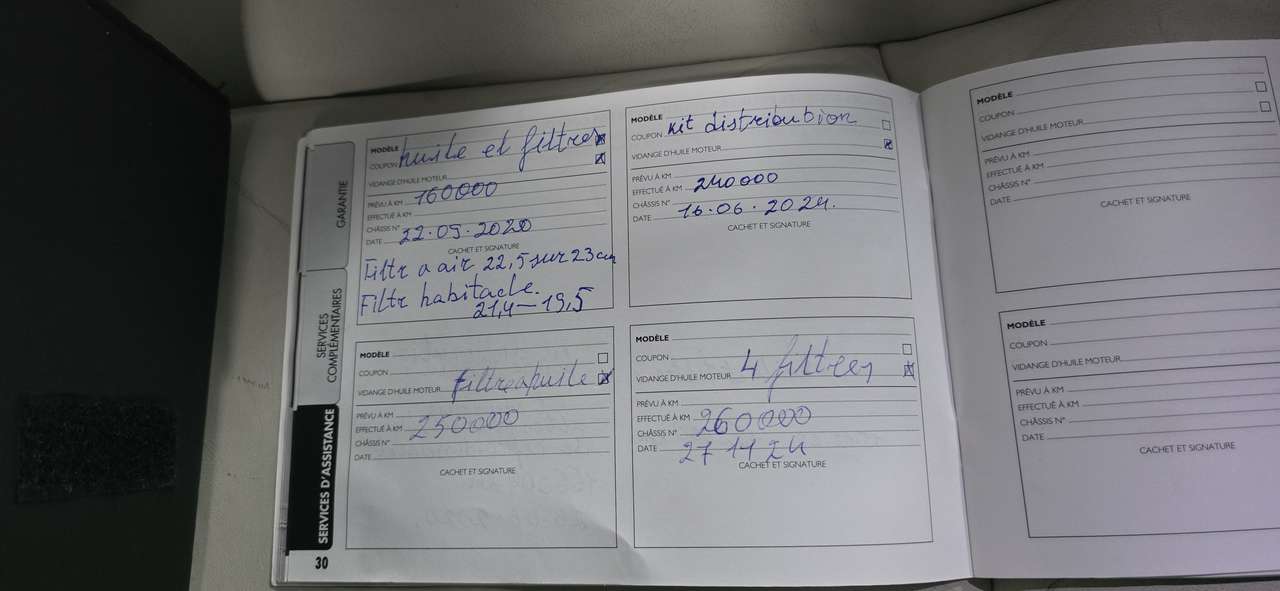 GARANTIE
SERVICES COMPLÉMENTAIRES
SERVICES D'ASSISTANCE
30
MODÈLE
COUPON huile et filtres
VIDANGE D'HUILE MOTEUR
PRÉVU À KM 160000
EFFECTUÉ À KM
CHÂSSIS N°
DATE 22.09.2020
CACHET ET SIGNATURE
Filtr a air 22,5 sur 23 cm
Filtr habitacle.
21,4 — 19,5
MODÈLE
COUPON kit distribution
VIDANGE D'HUILE MOTEUR
PRÉVU À KM
EFFECTUÉ À KM 240000
CHÂSSIS N°
DATE 16.06.2024.
CACHET ET SIGNATURE
MODÈLE
COUPON
VIDANGE D'HUILE MOTEUR filtre a huile
PRÉVU À KM
EFFECTUÉ À KM 250000
CHÂSSIS N°
DATE
CACHET ET SIGNATURE
MODÈLE
COUPON
VIDANGE D'HUILE MOTEUR 4 filtres
PRÉVU À KM
EFFECTUÉ À KM 260000
CHÂSSIS N°
DATE 27 11 24
CACHET ET SIGNATURE
MODÈLE
COUPON
VIDANGE D'HUILE MOTEUR
PRÉVU À KM
EFFECTUÉ À KM
CHÂSSIS N°
DATE
CACHET ET SIGNATURE
MODÈLE
COUPON
VIDANGE D'HUILE MOTEUR
PRÉVU À KM
EFFECTUÉ À KM
CHÂSSIS N°
DATE
CACHET ET SIGNATURE